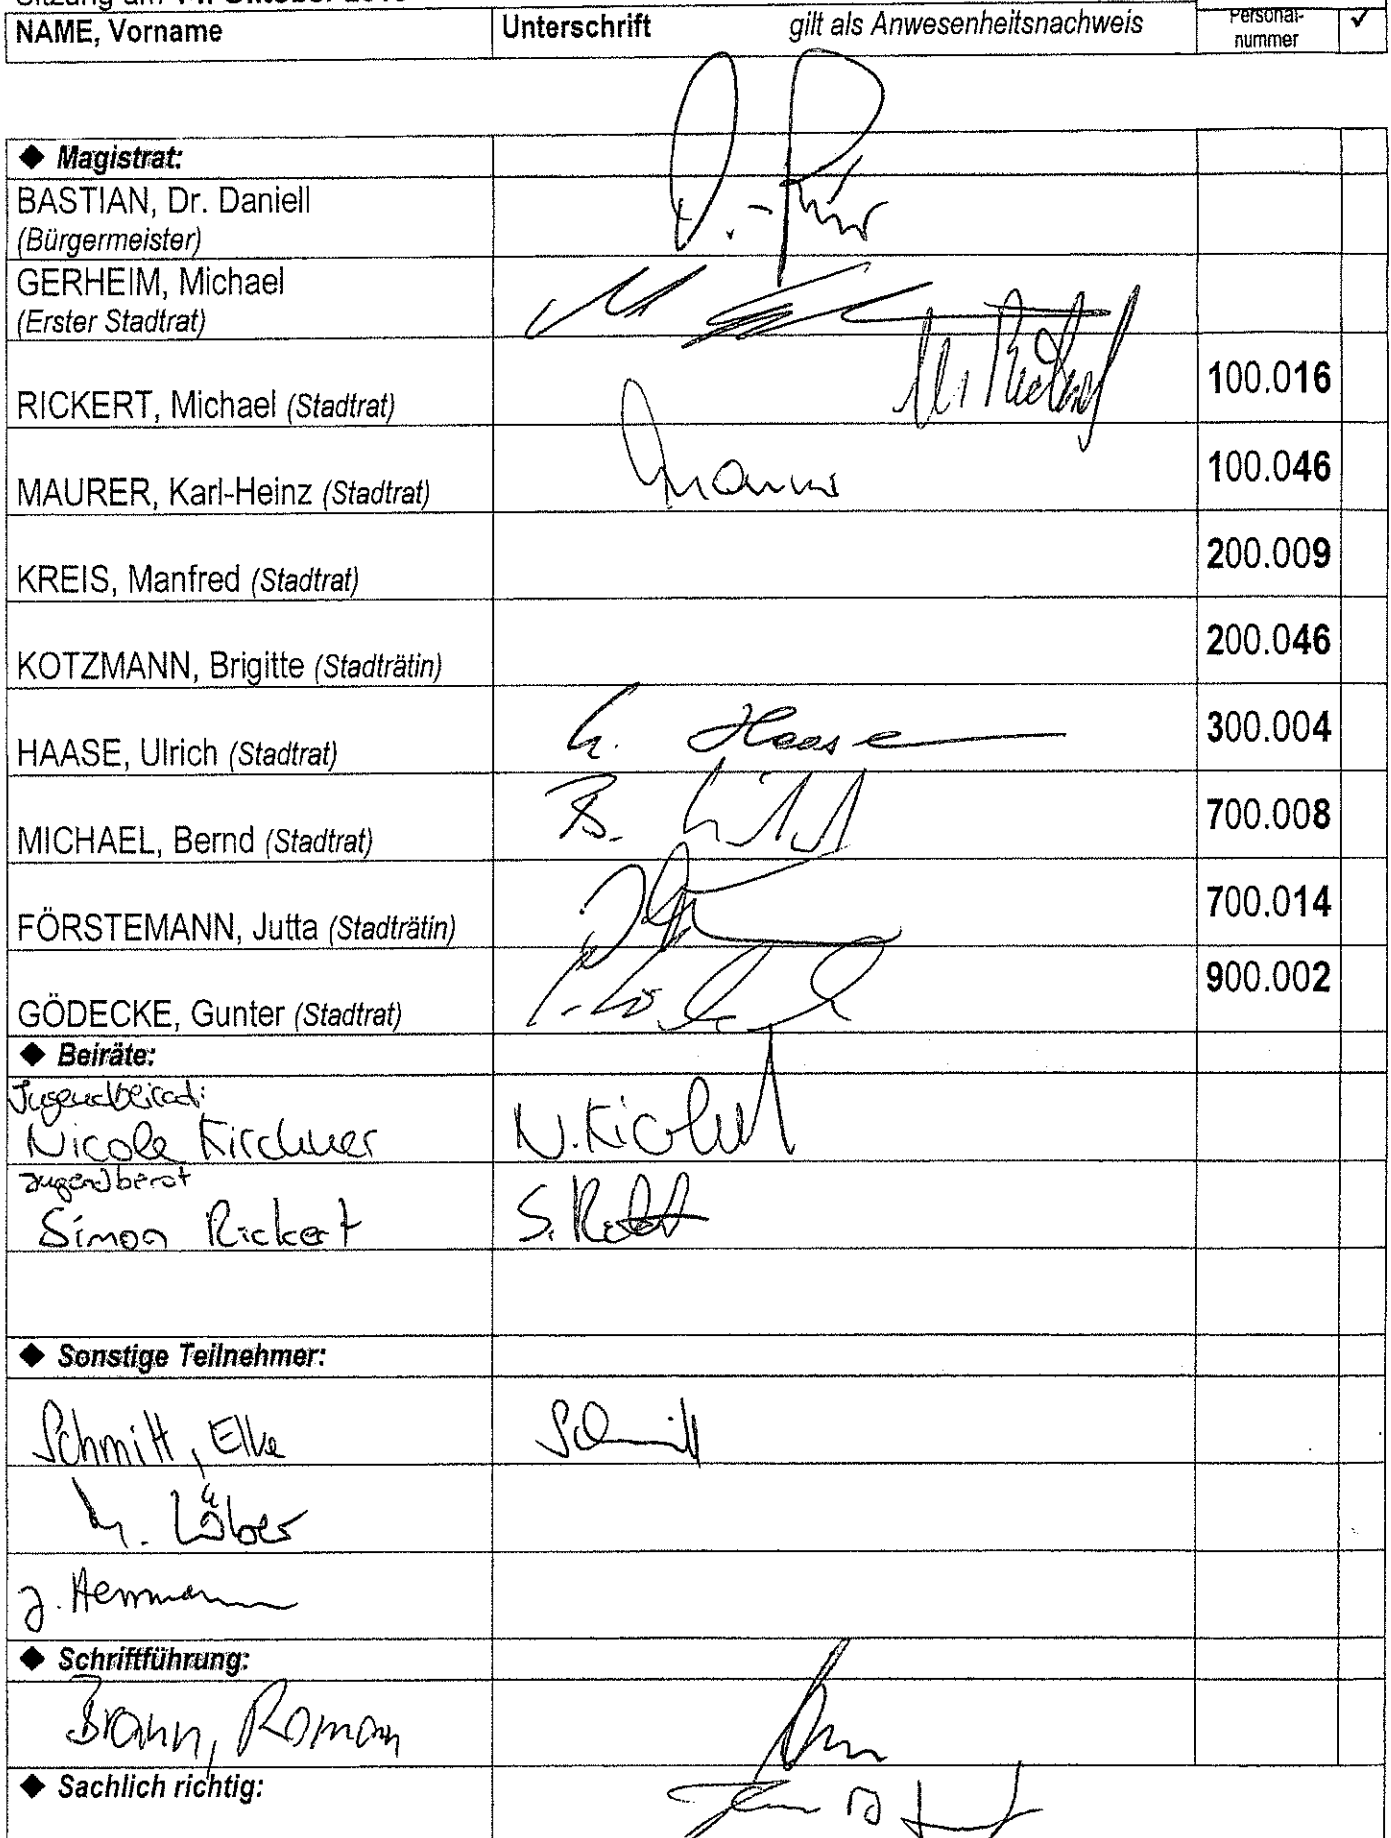 NAME, Vorname Unterschrift gilt als Anwesenheitsnachweis Personal-
nummer ✓
◆ Magistrat:
BASTIAN, Dr. Daniell
(Bürgermeister)
GERHEIM, Michael
(Erster Stadtrat)
RICKERT, Michael (Stadtrat) 100.016
MAURER, Karl-Heinz (Stadtrat) 100.046
KREIS, Manfred (Stadtrat) 200.009
KOTZMANN, Brigitte (Stadträtin) 200.046
HAASE, Ulrich (Stadtrat) Haase 300.004
MICHAEL, Bernd (Stadtrat) B. 700.008
FÖRSTEMANN, Jutta (Stadträtin) 700.014
GÖDECKE, Gunter (Stadtrat) 900.002
◆ Beiräte:
Jugendbeirat:
Nicole Kirchner N.
Jugendbeirat
Simon Rickert S.
◆ Sonstige Teilnehmer:
Schmitt, Elke Schmitt
Löber
J. Herrmann
◆ Schriftführung:
Braun, Roman
◆ Sachlich richtig: